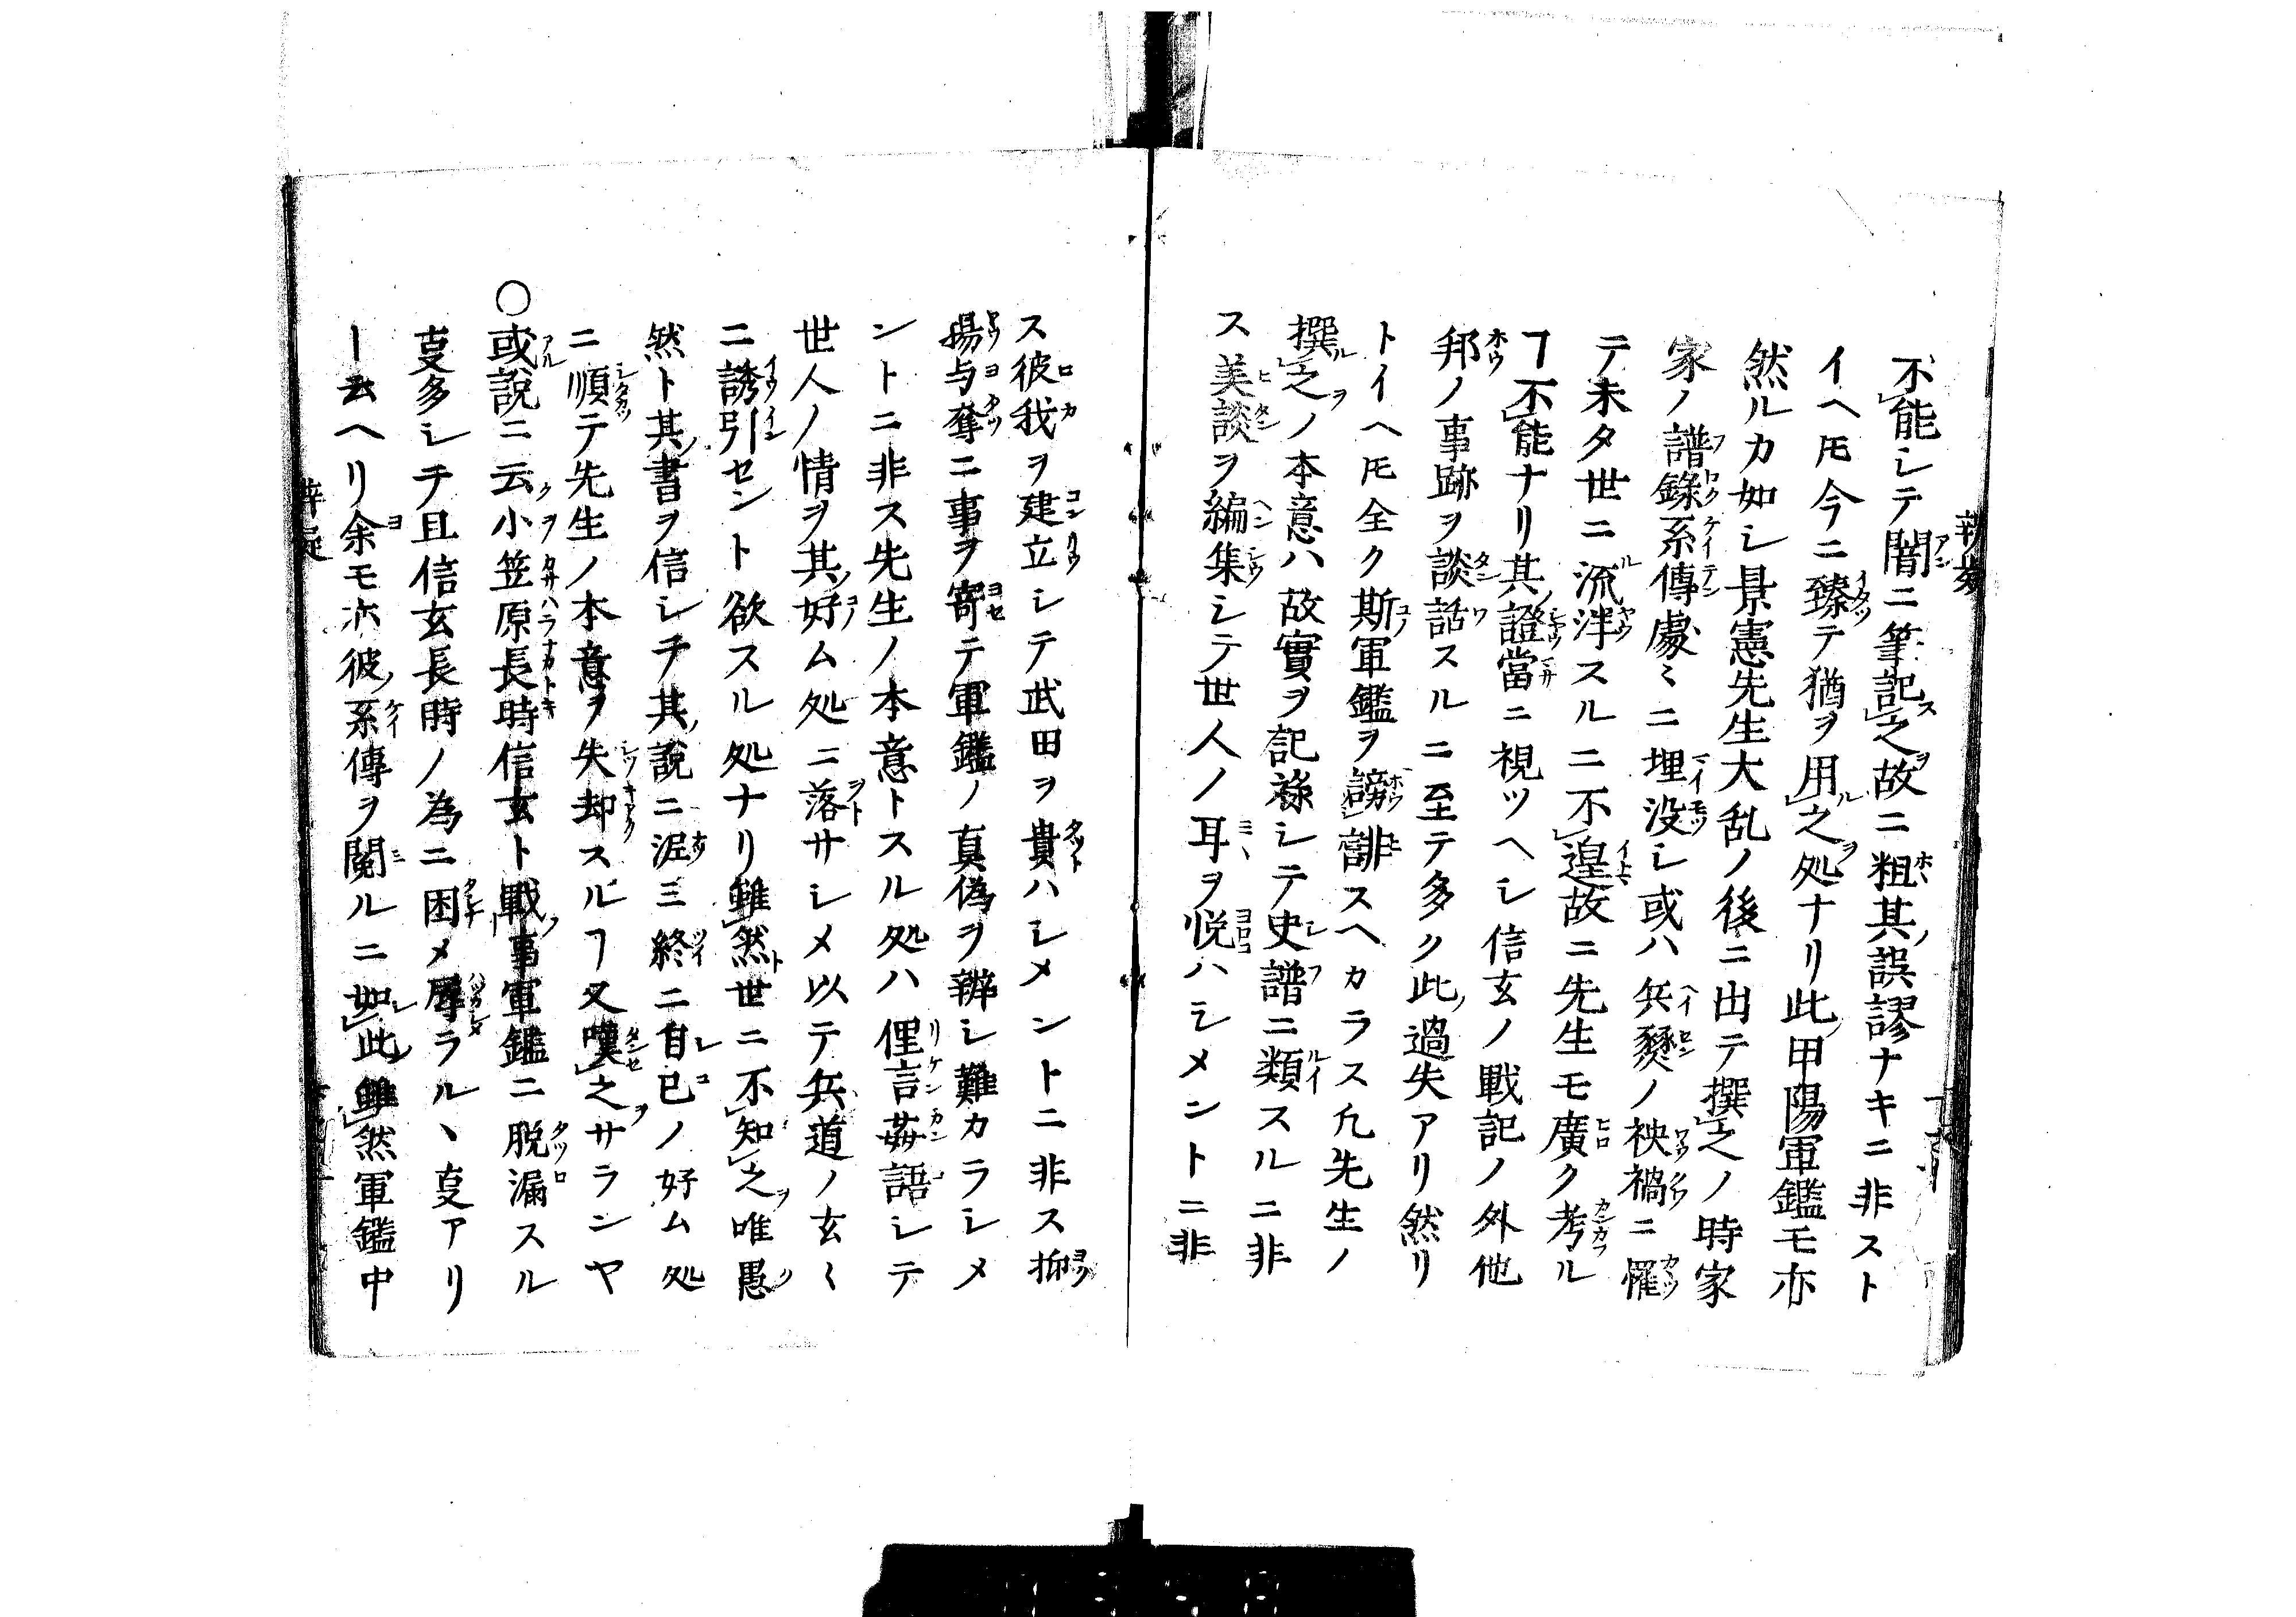 不能シテ闇ニ筆記之故ニ粗其誤謬ナキニ非スト
イヘ𪜈今ニ臻テ猶ヲ用之処ナリ此甲陽軍鑑モ亦
然ルカ如シ景憲先生大乱ノ後ニ出テ撰之ノ時家
家ノ譜錄系傳處〻ニ埋没シ或ハ兵燹ノ殃禍ニ罹
テ未タ世ニ流泮スルニ不遑故ニ先生モ廣ク考ル
ヿ不能ナリ其證當ニ視ツヘシ信玄ノ戰記ノ外他
邦ノ事跡ヲ談話スルニ至テ多ク此過失アリ然リ
トイヘ𪜈全ク斯軍鑑ヲ謗誹スヘカラス凢先生ノ
撰之ノ本意ハ故實ヲ記祿シテ史譜ニ類スルニ非
ス美談ヲ編集シテ世人ノ耳ヲ悦ハシメントニ非
ス彼我ヲ建立シテ武田ヲ貴ハシメントニ非ス抑
揚与奪ニ事ヲ寄テ軍鑑ノ真偽ヲ辨シ難カラシメ
ントニ非ス先生ノ本意トスル処ハ俚言姦語シテ
世人ノ情ヲ其好ム処ニ落サシメ以テ兵道ノ玄〻
ニ誘引セント欲スル処ナリ雖然世ニ不知之唯愚
然ト其書ヲ信シテ其說ニ泥三終ニ自己ノ好ム処
ニ順テ先生ノ本意ヲ失却スルヿ又嘆之サランヤ
○或說ニ云小笠原長時信玄ト戰事軍鑑ニ脫漏スル
㕝多シテ且信玄長時ノ為ニ困メ辱ラルヽ㕝アリ
ー云ヘリ余モ亦彼系傳ヲ閱ルニ如此雖然軍鑑中